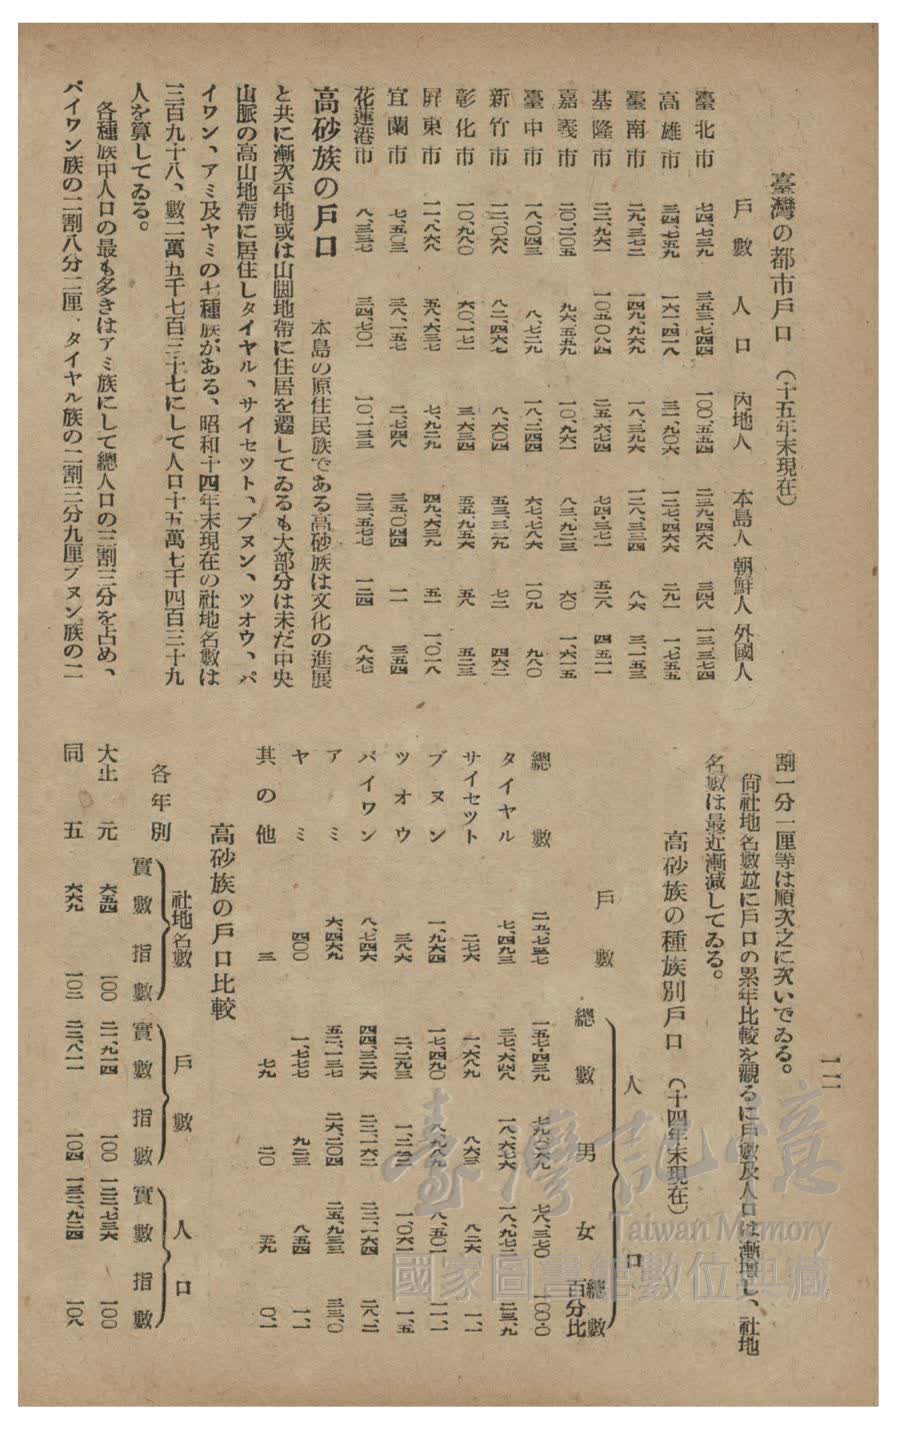 臺灣の都市戶口 （十五年末現在）
戶數 人口 內地人 本島人 朝鮮人 外國人
臺北市 七四、七三九 三五三、七四四 一〇〇、五五四 二三九、四六八 三四八 一三、三七四
高雄市 三四、七五九 一六二、四一八 三一、九〇六 一二七、四六六 二九一 一、七五五
臺南市 二九、三七二 一四九、九六九 一八、三九六 一二八、三三四 八六 三、一五三
基隆市 二三、九六二 一〇五、〇八四 二五、六七四 七四、三七一 五二八 四、五一一
嘉義市 二〇、二〇五 九六、五五九 一〇、九六一 八三、九二三 六〇 一、六一五
臺中市 一八、〇四三 八、七二九 一八、二四四 六七、七八六 一〇九 九八〇
新竹市 一二、〇六八 八二、四六七 八、六〇四 五三、三二九 七二 四六二
彰化市 一〇、九八〇 六〇、一七一 三、六三四 五五、九五六 五八 五二三
屛東市 一一、八六六 五八、六三七 七、九二九 四九、六三九 五一 一、〇一八
宜蘭市 七、五〇三 三八、一五七 二、七四八 三五、〇四四 一一 三五四
花蓮港市 八、三三七 三四、七〇一 一〇、一三三 二三、五七七 一二四 八六七
高砂族の戶口 本島の原住民族である高砂族は文化の進展
と共に漸次平地或は山脚地帶に住居を遷してゐるも大部分は未だ中央
山脈の高山地帶に居住しタイヤル、サイセツト、ブヌン、ツオウ、パ
イワン、アミ及ヤミの七種族がある、昭和十四年末現在の社地名數は
三百九十八、數二萬五千七百三十七にして人口十五萬七千四百三十九
人を算してゐる。
各種族中人口の最も多きはアミ族にして總人口の三割三分を占め、
パイワン族の二割八分二厘、タイヤル族の二割三分九厘ブヌン族の一
一一
割一分一厘等は順次之に次いでゐる。
（尙社地名數竝に戶口の累年比較を觀るに戶數及人口は漸增し、社地
名數は最近漸減してゐる。
高砂族の種族別戶口 （十四年末現在）
戶數 人口
總數 男 女 總數百分比
總數 二五、七三七 一五七、四三九 七九、〇六九 七八、三七〇 一〇〇・〇
タイヤル 七、四九三 三七、六四八 一八、六七六 一八、九七二 二三、九
サイセツト 二七六 一、六八九 八六三 八二六 一、一
ブヌン 一、九六四 一七、四九〇 八、九八九 八、五〇一 一一、一
ツオウ 三八六 二、二九三 一、二三二 一、〇六一 一、五
パイワン 八、七四六 四四、三二六 二二、一六二 二二、一六四 二八、二
アミ 六、四六九 五二、一三七 二六、二〇四 二五、九三三 三三、〇
ヤミ 四〇〇 一、七七七 九二三 八五四 一、一
其の他 三 七九 二〇 五九 〇、一
高砂族の戶口比較
各年別 社地名數 戶數 人口
實數 指數 實數 指數 實數 指數
大正元 六五四 一〇〇 二一、九一四 一〇〇 一二二、七三六 一〇〇
同五 六六九 一〇二 二三、八一一 一〇四 一三二、九二四 一〇八
臺灣記憶
Taiwan Memory
國家圖書館數位典藏